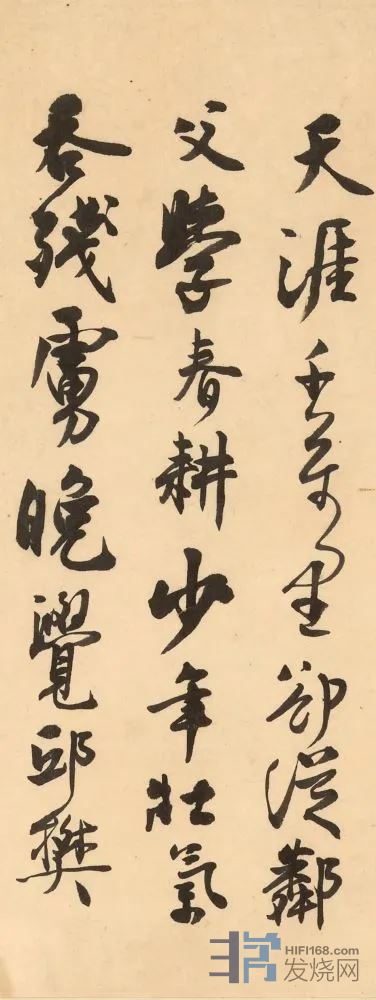 天涯千萬里卻從鄰
父學春耕少年壯氣
吞殘虜晚覺邱樊
HIFI168.com
发烧网